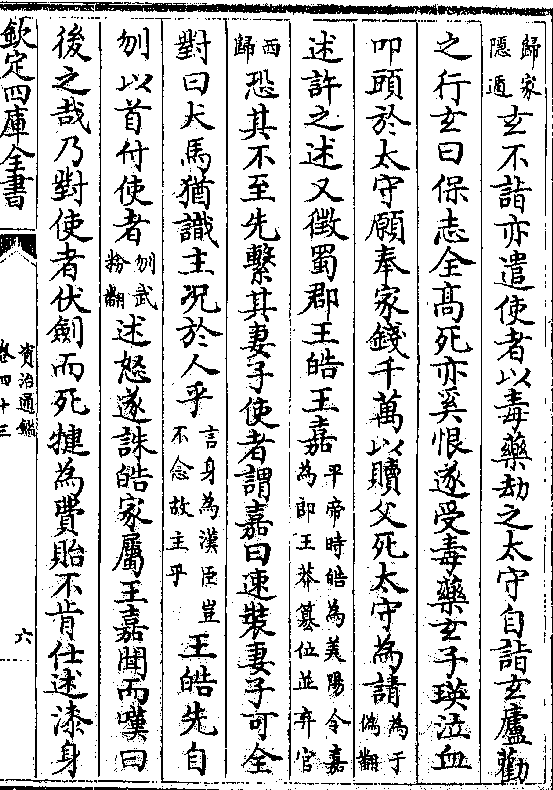 歸家隱遁玄不詣亦遣使者以毒藥劫之太守自詣玄廬勸
之行玄曰保志全高死亦奚恨遂受毒藥玄子瑛泣血
叩頭於太守願奉家錢千萬以贖父死太守為請為于偽翻
述許之述又徵蜀郡王皓王嘉平帝時皓為美陽令嘉為郎王莽簒位並弃官
西歸恐其不至先繫其妻子使者謂嘉曰速裝妻子可全
對曰犬馬猶識主况於人乎言身為漢臣豈不念故主乎王皓先自
刎以首付使者刎武粉翻述怒遂誅皓家屬王嘉聞而嘆曰
後之哉乃對使者伏劍而死㨗為費貽不肯仕述漆身
欽定四庫全書
資治通鑑
卷四十三
六